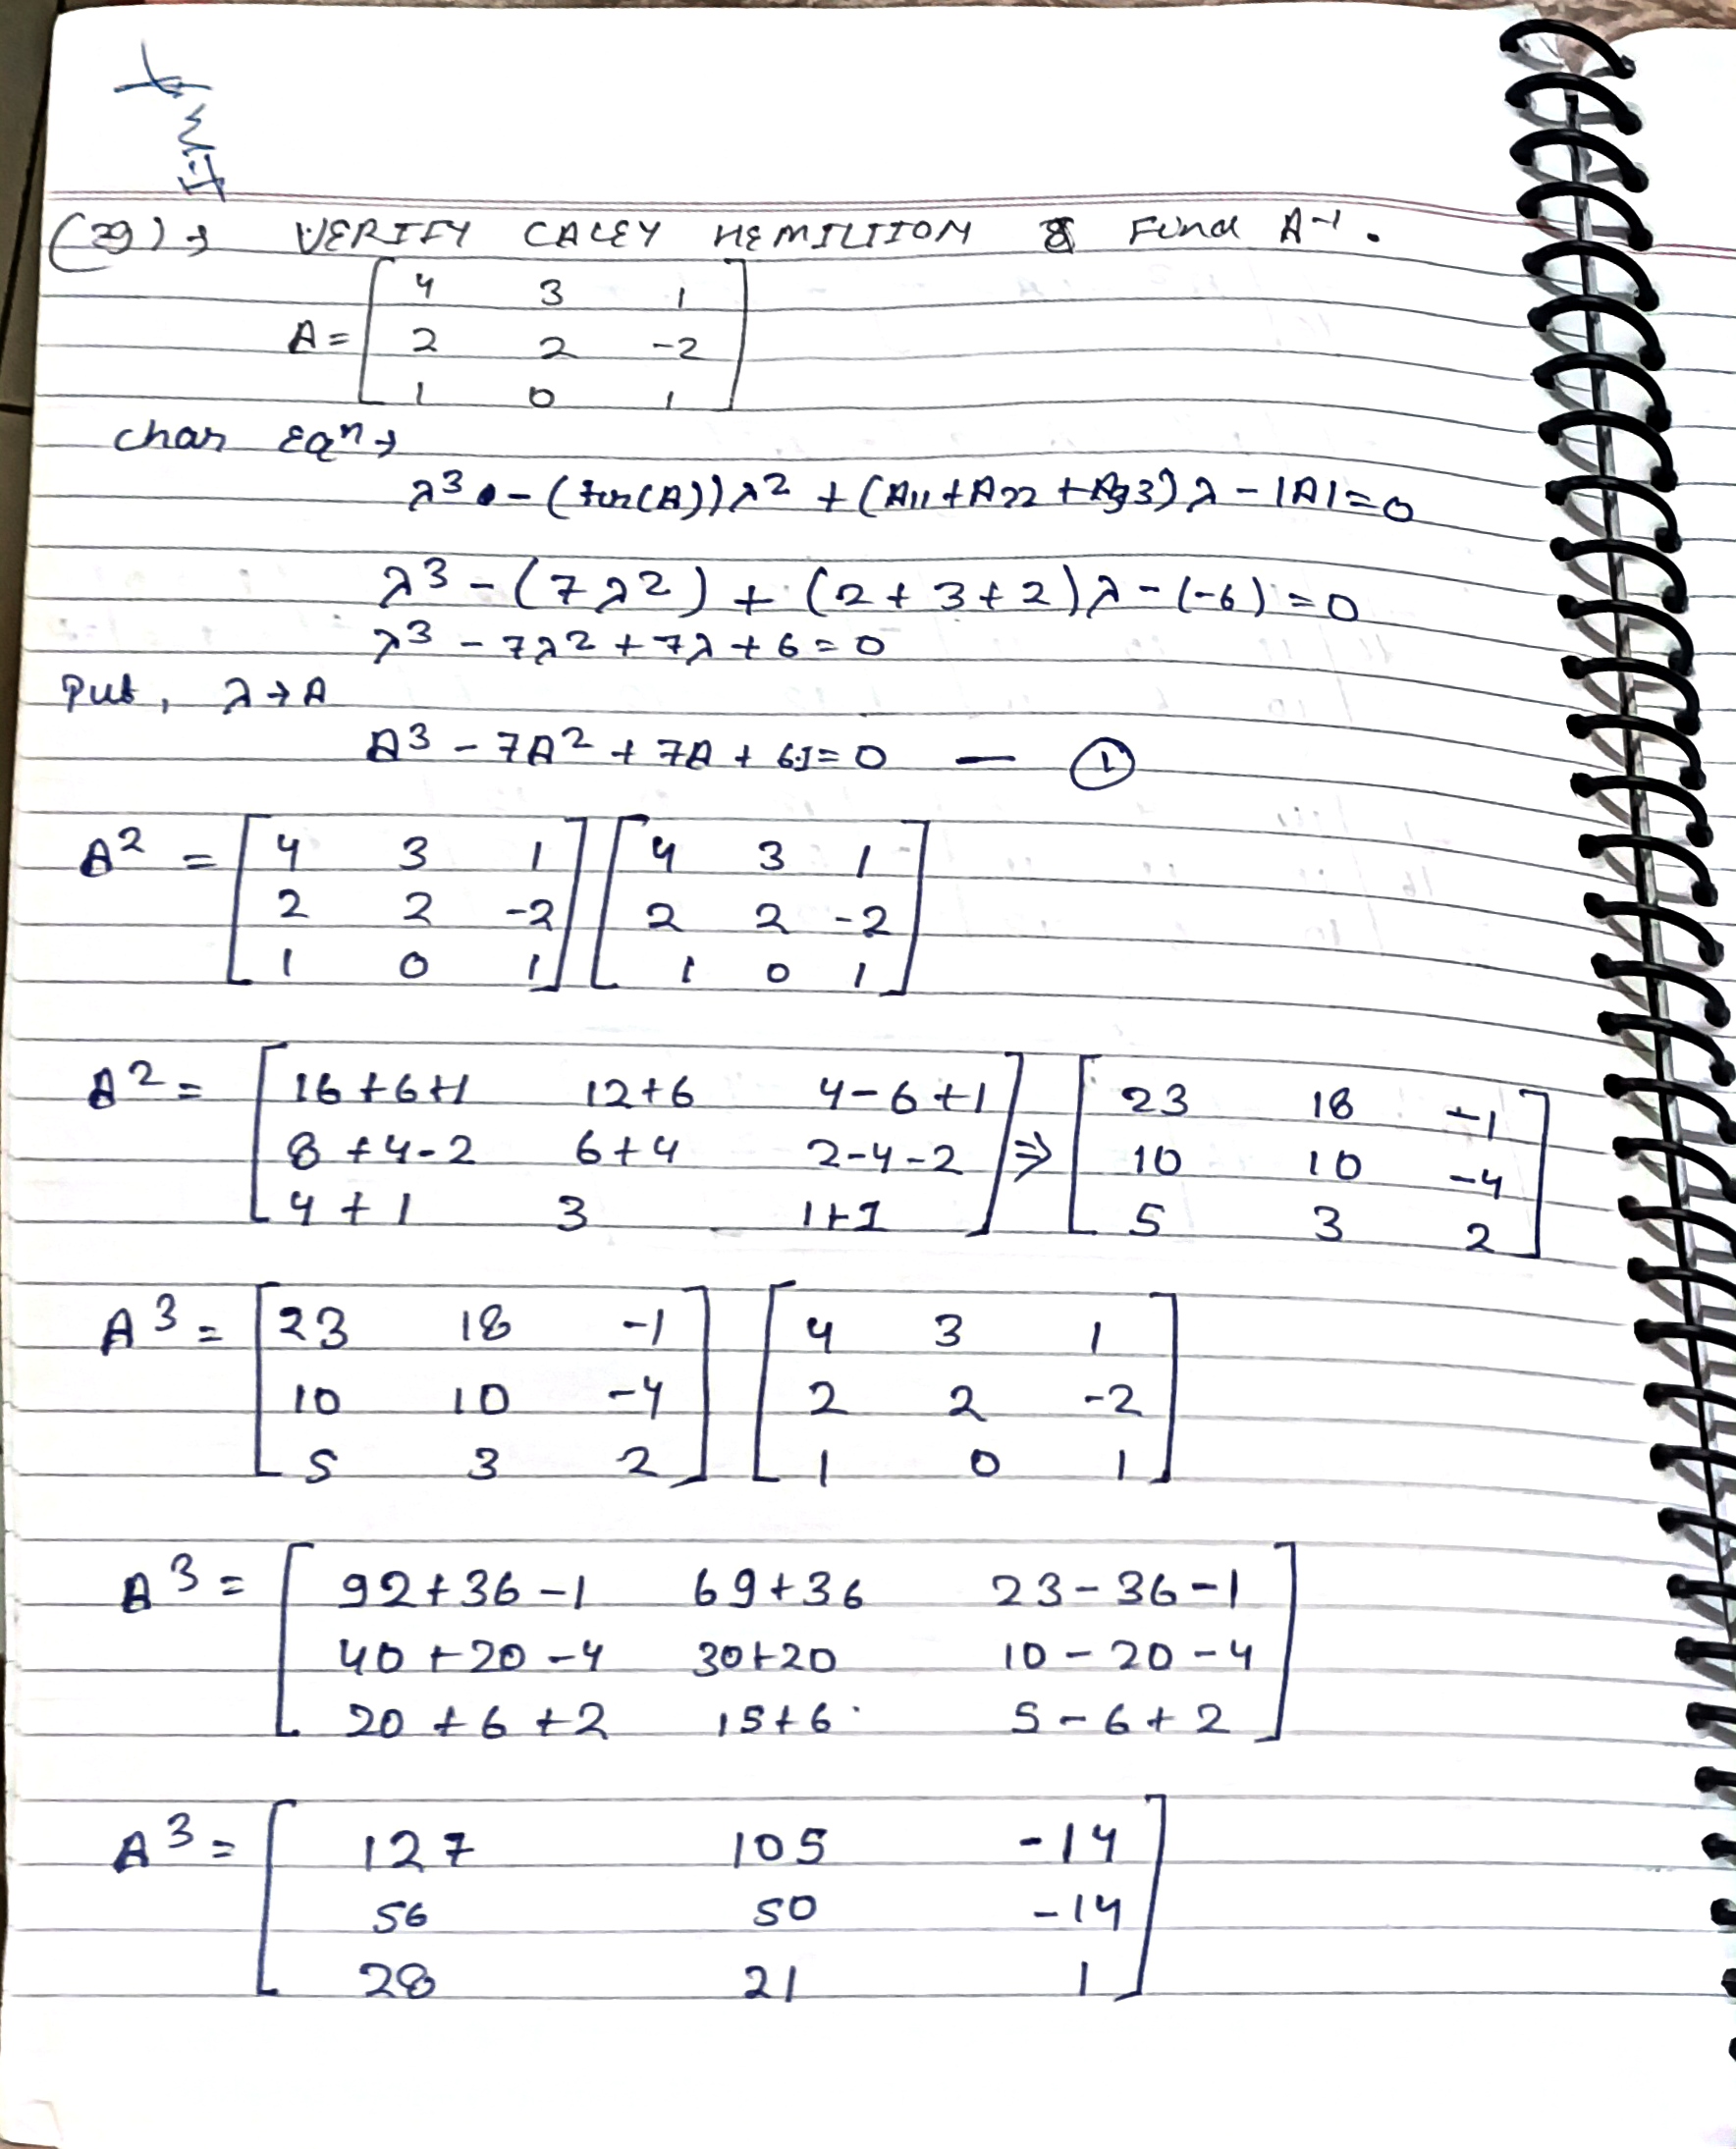 (29) → VERIFY CALEY HEMILITION & Find A-1.
A = [ 4 3 1
2 2 -2
1 0 1 ]
char Eqⁿ →
λ³ - (tr(A))λ² + (A11+A22+A33)λ - |A| = 0
λ³ - (7λ²) + (2+3+2)λ - (-6) = 0
λ³ - 7λ² + 7λ + 6 = 0
Put, λ → A
A³ - 7A² + 7A + 6I = 0 — ①
A² = [ 4 3 1 ] [ 4 3 1 ]
[ 2 2 -2 ] [ 2 2 -2 ]
[ 1 0 1 ] [ 1 0 1 ]
A² = [ 16+6+1 12+6 4-6+1 ] ⇒ [ 23 18 -1 ]
[ 8+4-2 6+4 2-4-2 ] [ 10 10 -4 ]
[ 4+1 3 1+1 ] [ 5 3 2 ]
A³ = [ 23 18 -1 ] [ 4 3 1 ]
[ 10 10 -4 ] [ 2 2 -2 ]
[ 5 3 2 ] [ 1 0 1 ]
A³ = [ 92+36-1 69+36 23-36-1 ]
[ 40+20-4 30+20 10-20-4 ]
[ 20+6+2 15+6 5-6+2 ]
A³ = [ 127 105 -14 ]
[ 56 50 -14 ]
[ 28 21 1 ]